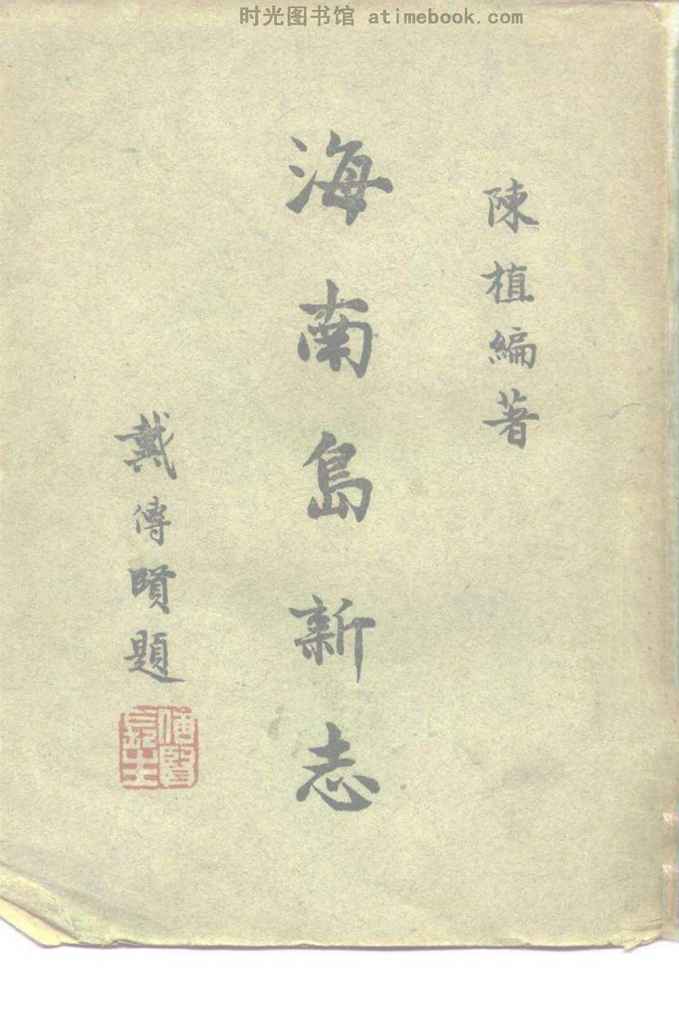 时光图书馆 atimebook.com
陳植編著
海南島新志
戴傳賢題